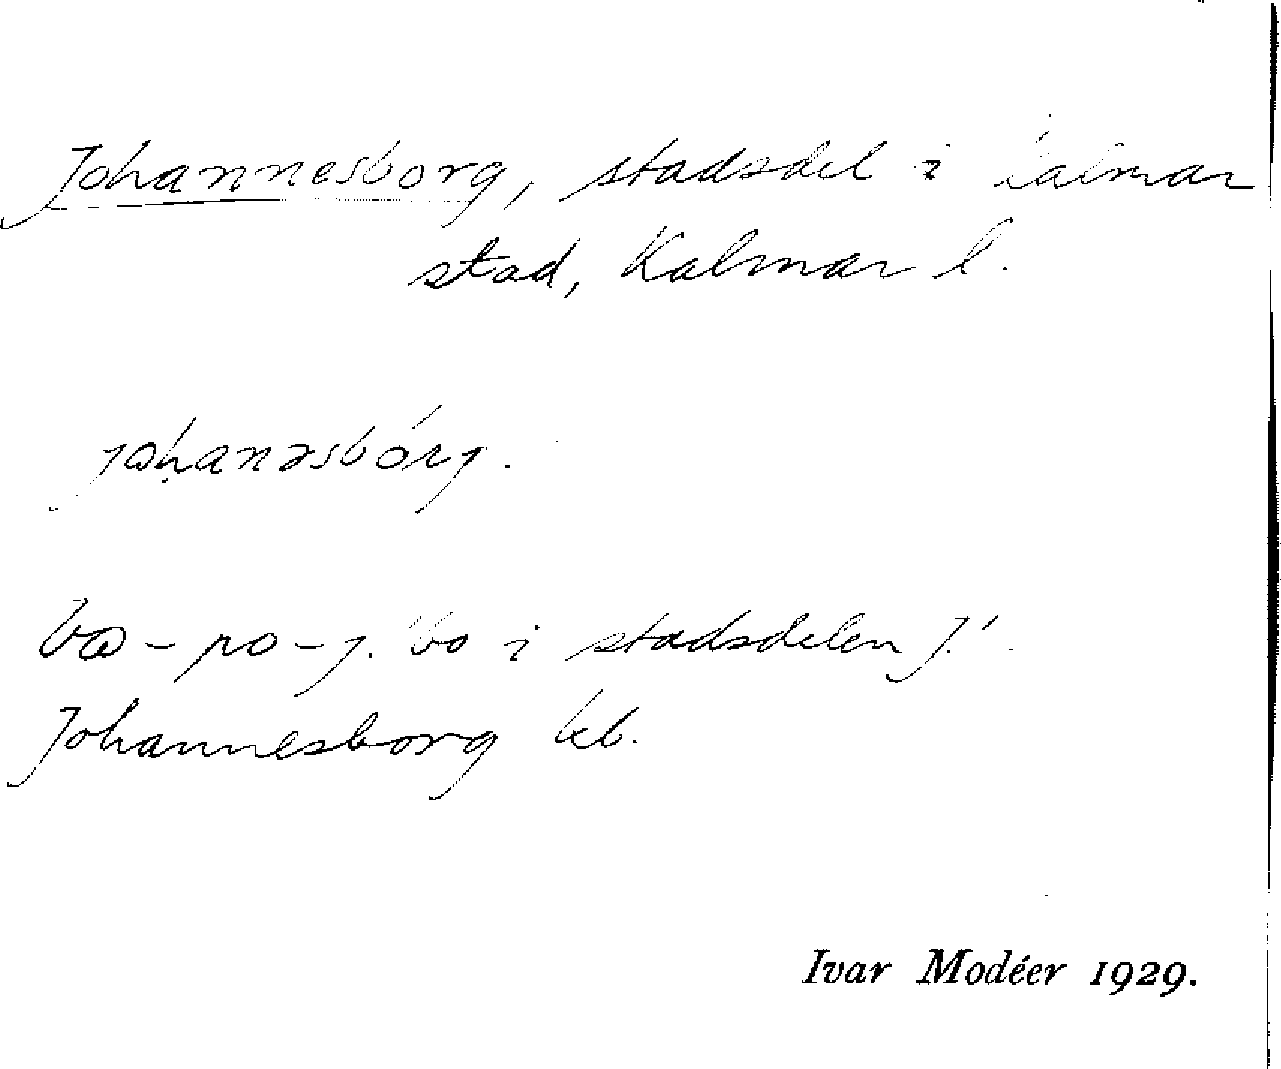 Johannesborg, stadsdel i Kalmar
stad, Kalmar l.
johanəsbórj.
bo – po – j. 'bo i stadsdelen J.'
Johannesborg kb.
Ivar Modéer 1929.